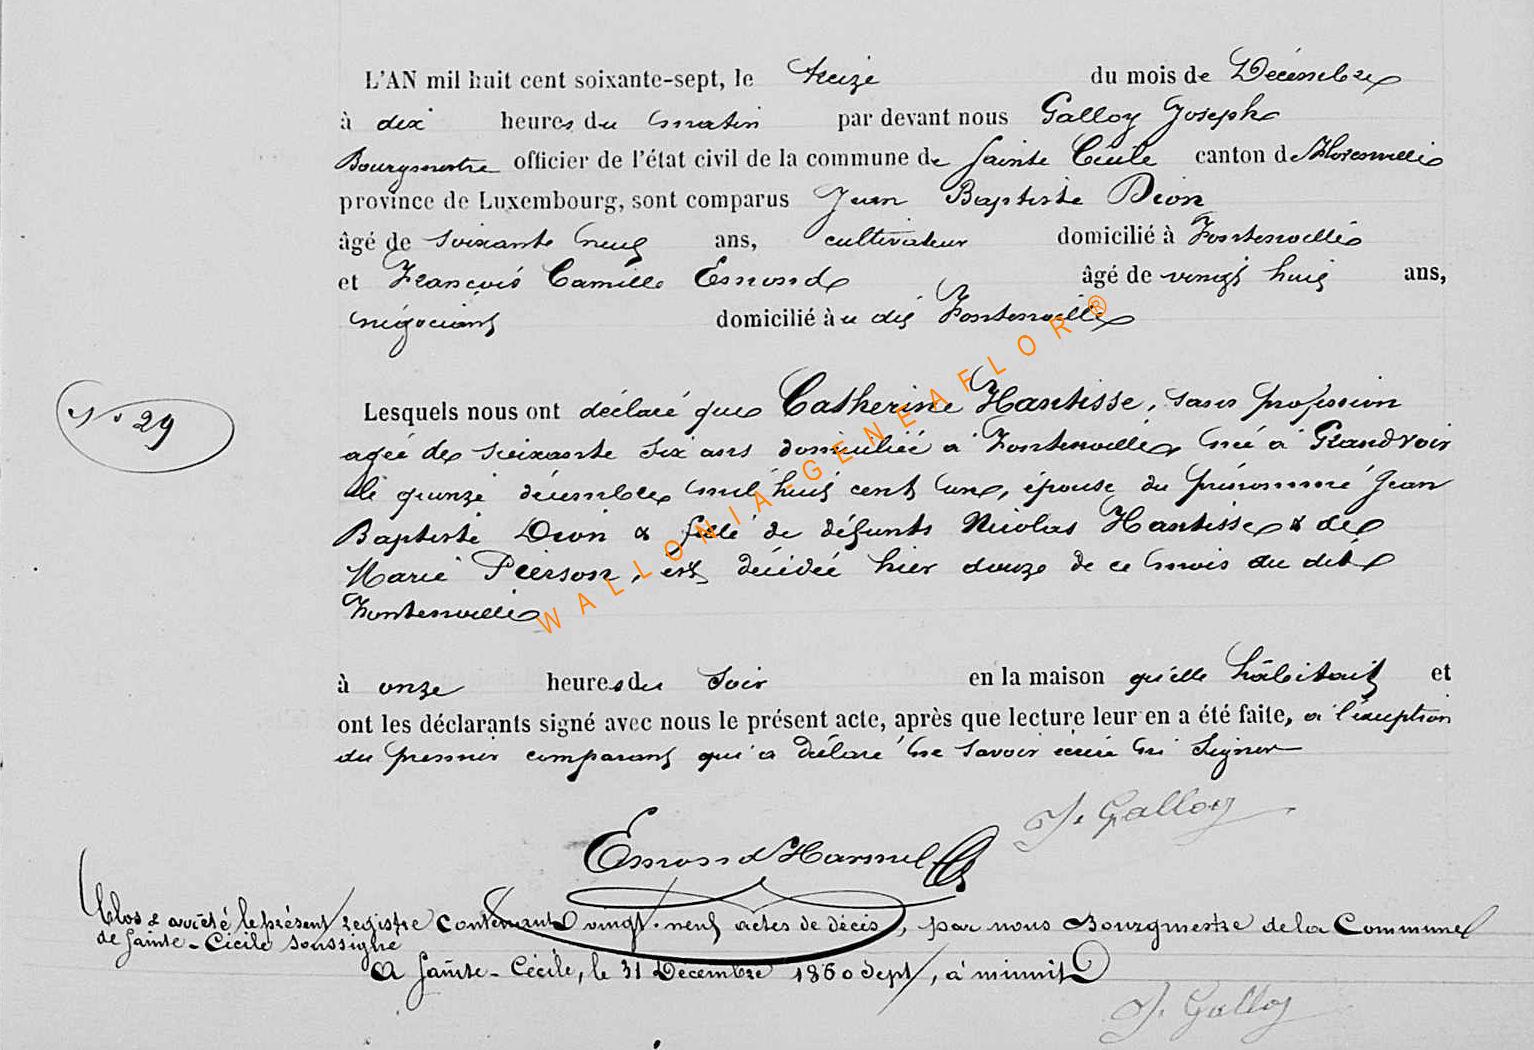 L'AN mil huit cent soixante-sept, le treize du mois de Décembre
à dix heures du matin par devant nous Galloy Joseph
Bourgmestre officier de l'état civil de la commune de Sainte Cécile canton de Florenville
province de Luxembourg, sont comparus Jean Baptiste Dion
âgé de soixante neuf ans, cultivateur domicilié à Fontenoille
et François Camille Emond âgé de vingt huit ans,
négociant domicilié à u dit Fontenoille
N° 29
Lesquels nous ont déclaré que Catherine Hantisse, sans profession
agée de soixante six ans domiciliée à Fontenoille née à Grandvoir
le quinze décembre mil huit cent un, épouse du prénommé Jean
Baptiste Dion & fille de défunts Nicolas Hantisse & de
Marie Pierson, est décédée hier douze de ce mois au dit
Fontenoille
à onze heures du soir en la maison qu'elle habitait et
ont les déclarants signé avec nous le présent acte, après que lecture leur en a été faite, à l'exception
du premier comparant qui a déclaré ne savoir écrire ni signer
J. Galloy
Emond Harmel
Clos & arrêté le présent registre contenant vingt-neuf actes de décès, par nous Bourgmestre de la Commune
de Sainte-Cécile soussigné
A Sainte-Cécile, le 31 Décembre 1860 sept, à minuit
J. Galloy
WALLONIA-GENEAFLOR®